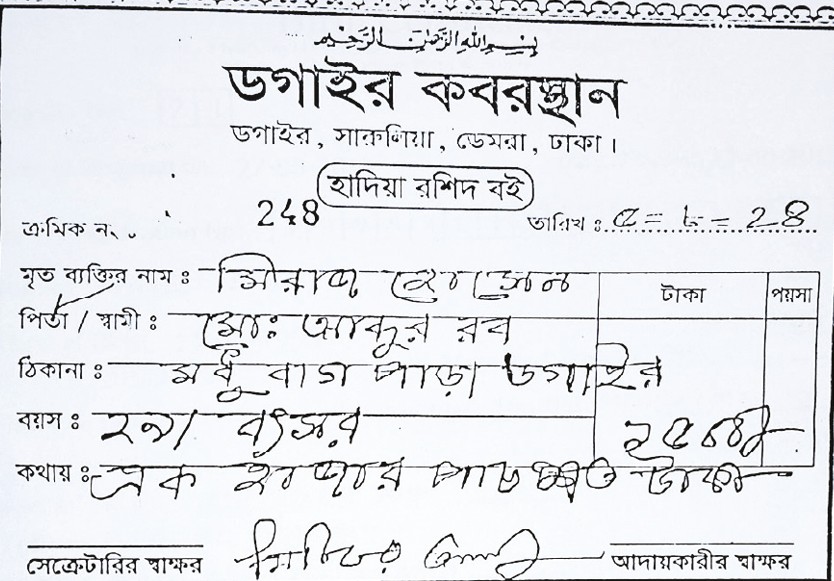 بسم الله الرحمن الرحيم
ডগাইর কবরস্থান
ডগাইর, সারুলিয়া, ডেমরা, ঢাকা।
হাদিয়া রশিদ বই
ক্রমিক নং 248 তারিখ : ৫=৮=28
মৃত ব্যক্তির নাম : সিরাজ হোসেন টাকা পয়সা
পিতা / স্বামী : মোঃ আব্দুর রব
ঠিকানা : মধু বাগ পাড়া ডগাইর
বয়স : ২৯/ বৎসর
কথায় : এক হাজার পাচ শত টাকা
সেক্রেটারির স্বাক্ষর আদায়কারীর স্বাক্ষর